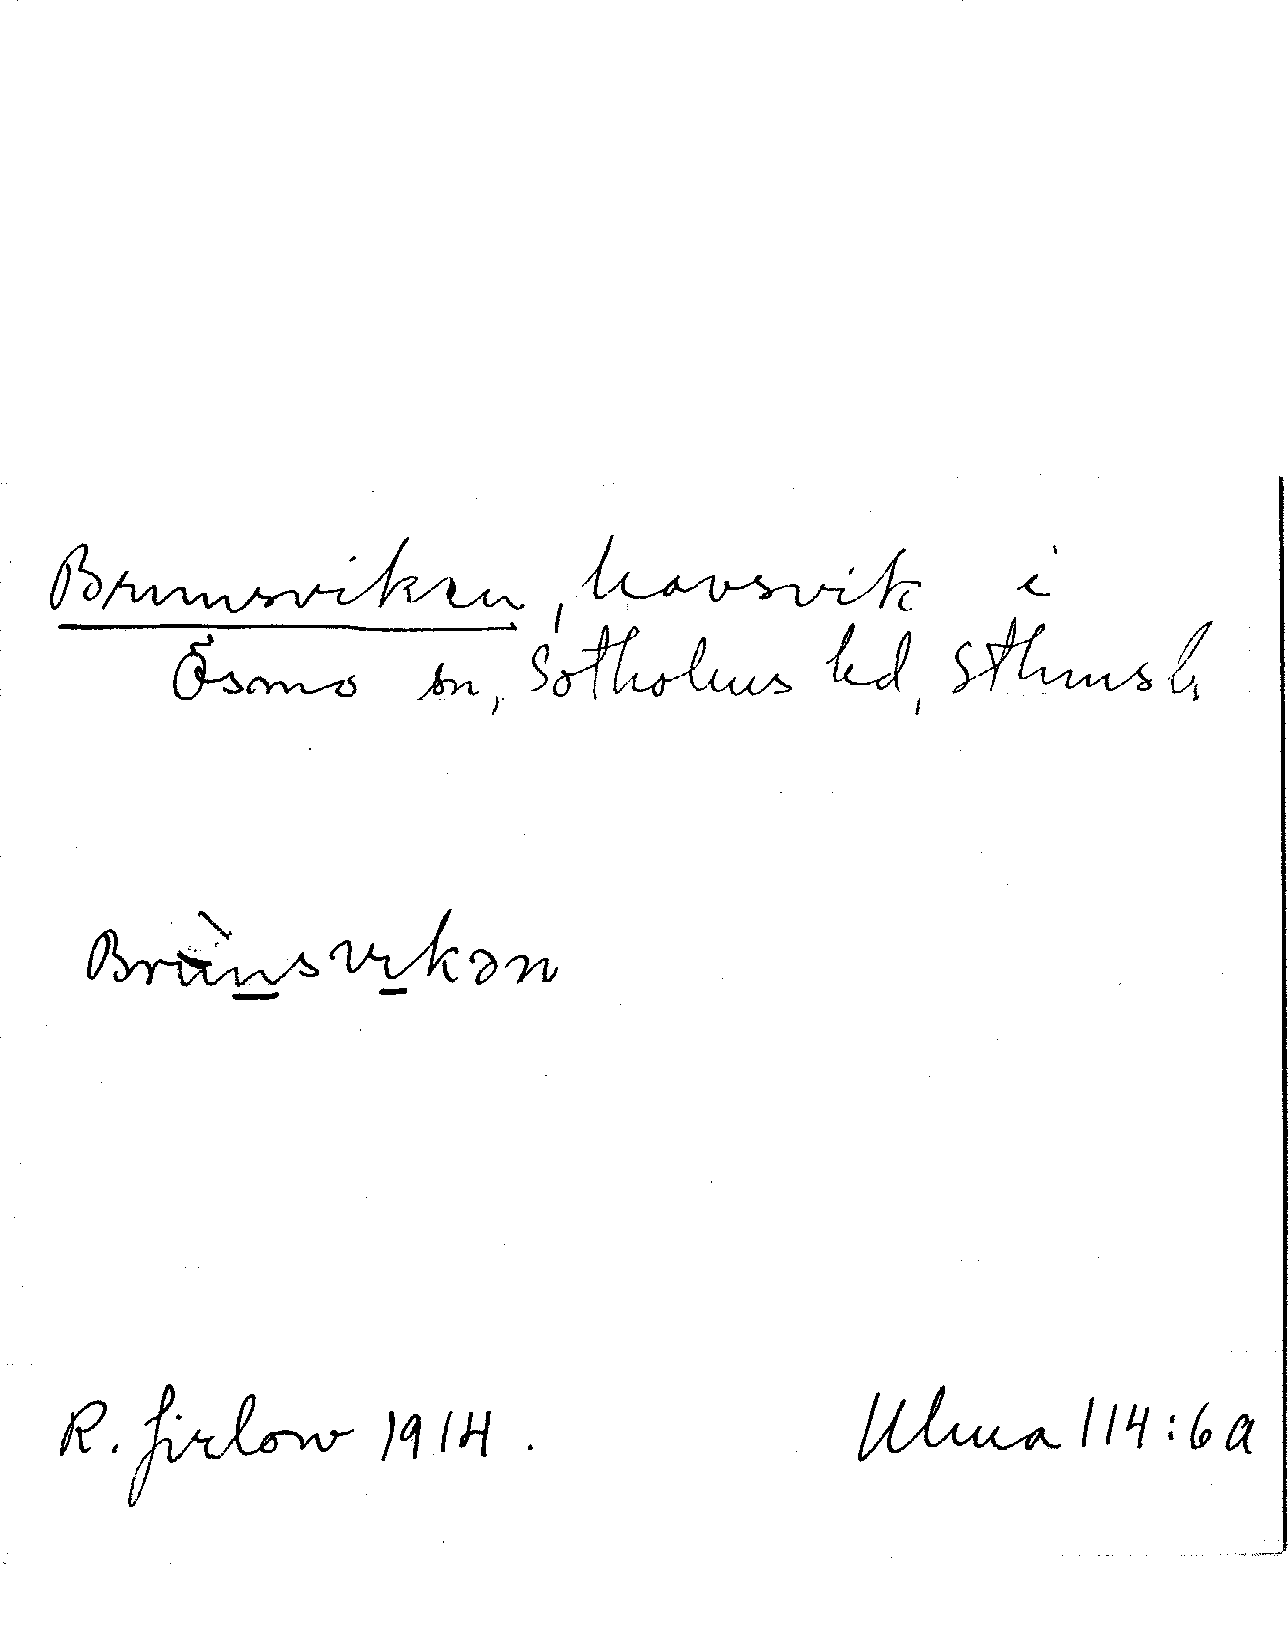 Brunnsviken, havsvik i
Ösmo sn, Sotholms hd, Sthms l.
Brùnsvikən
R. Jirlow 1914.
Ulma 114:6a